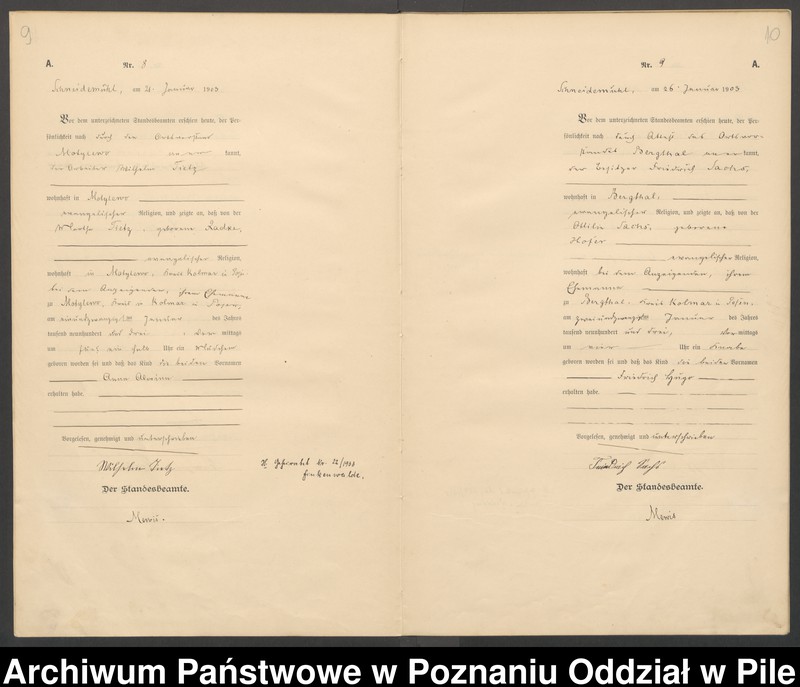 9
A.
Nr. 8
Schneidemühl, am 21. Januar 1903
Vor dem unterzeichneten Standesbeamten erschien heute, der Per-
sönlichkeit nach durch den
Motylewo kannt,
der Arbeiter Wilhelm Tietz
wohnhaft in Motylewo
evangelischer Religion, und zeigte an, daß von der
Tietz, geborene Radke,
evangelischer Religion,
wohnhaft in Motylewo, Kreis Kolmar i. Pos.
bei dem Anzeigenden, ihrem Ehemanne
zu Motylewo, Kreis Kolmar i. Posen,
am einundzwanzigsten Januar des Jahres
tausend neunhundert und drei, Vormittags
um fünf ein halb Uhr ein Mädchen
geboren worden sei und daß das Kind die beiden Vornamen
Anna
erhalten habe.
Vorgelesen, genehmigt und unterschrieben
Wilhelm Tietz
Der Standesbeamte.
Mewis.
Nr. 22/1933
Finkenwalde.
10
Nr. 9
A.
Schneidemühl, am 26. Januar 1903
Vor dem unterzeichneten Standesbeamten erschien heute, der Per-
sönlichkeit nach durch Attest des Ortsvor-
standes Bergthal kannt,
der Besitzer Friedrich Sachs,
wohnhaft in Bergthal,
evangelischer Religion, und zeigte an, daß von der
Ottilie Sachs, geborene
Hofer
evangelischer Religion,
wohnhaft bei dem Anzeigenden, ihrem
Ehemanne
zu Bergthal, Kreis Kolmar i. Posen,
am zweiundzwanzigsten Januar des Jahres
tausend neunhundert und drei, mittags
um vier Uhr ein Knabe
geboren worden sei und daß das Kind die beiden Vornamen
Friedrich Hugo
erhalten habe.
Vorgelesen, genehmigt und unterschrieben
Friedrich Sachs
Der Standesbeamte.
Mewis
Archiwum Państwowe w Poznaniu Oddział w Pile